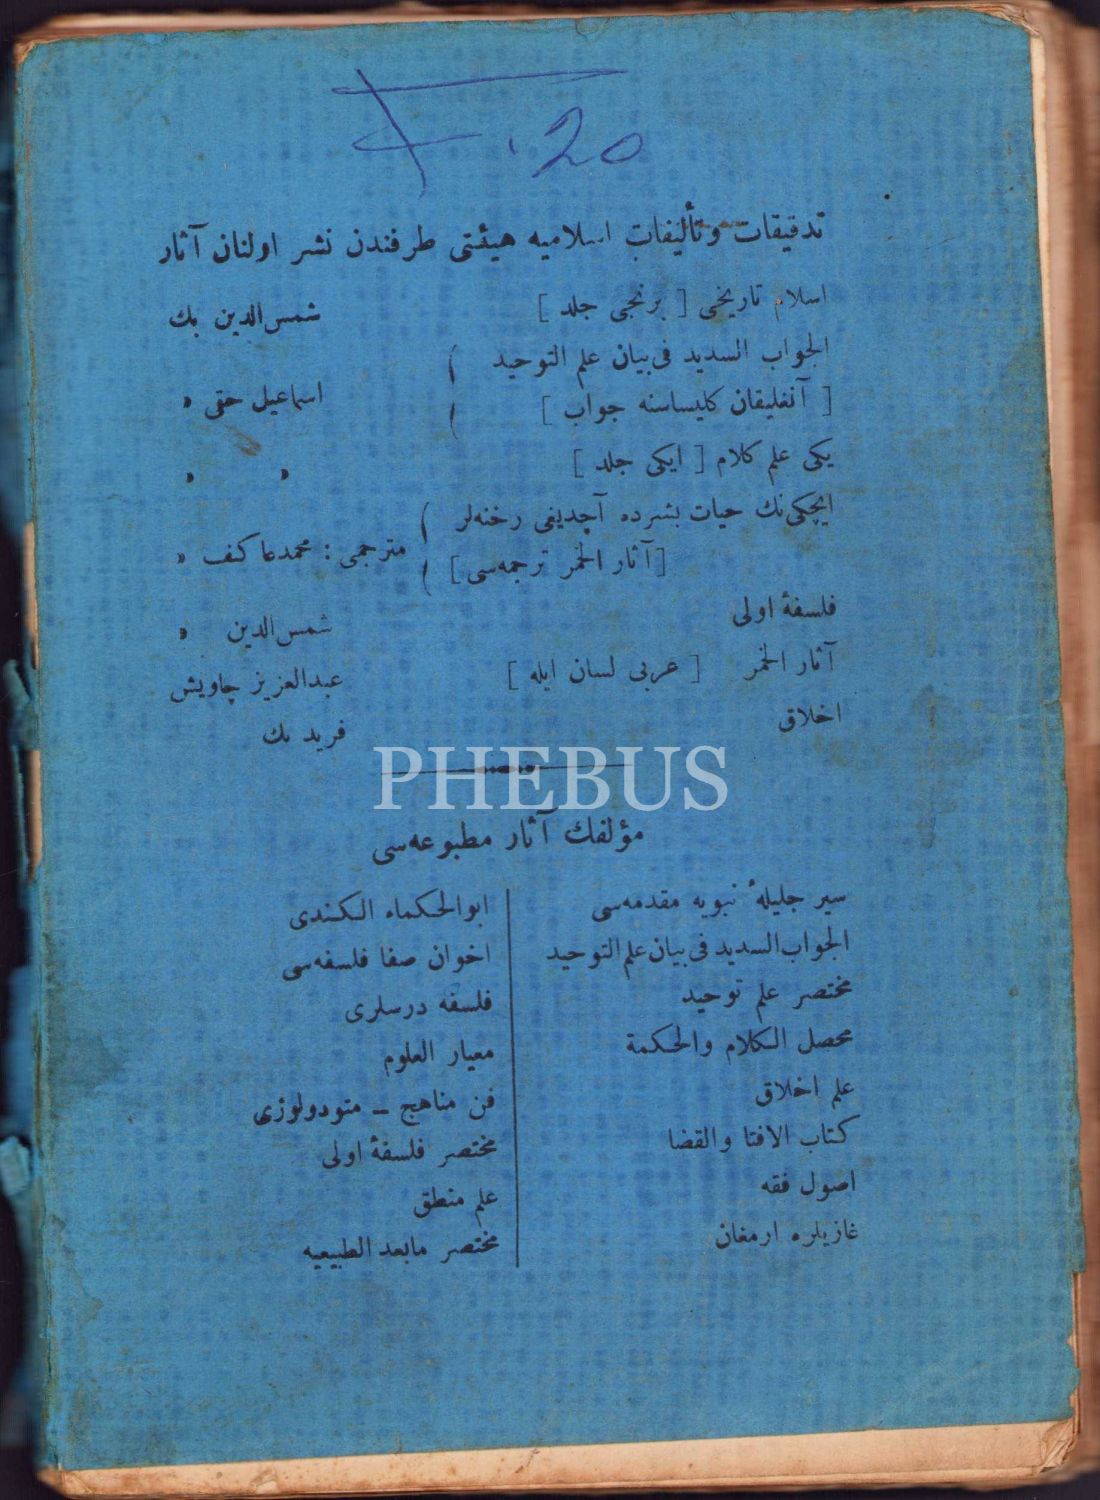 F. 20
تدقيقات وتأليفات اسلاميه هيئتى طرفندن نشر اولنان آثار
اسلام تاريخى [ برنجى جلد ] شمس‌الدين بك
الجواب السديد فى بيان علم التوحيد
[ آنغليقان كليساسنه جواب ] اسماعيل حقى »
يكى علم كلام [ ايكى جلد ] » »
ايچكى‌نك حيات بشرده آچديغى رخنه‌لر
[آثار الخمر ترجمه‌سى] مترجمى : محمد عاكف »
فلسفۀ اولى شمس‌الدين »
آثار الخمر [ عربى لسان ايله ] عبدالعزيز چاويش
اخلاق فريد بك
PHEBUS
مؤلفك آثار مطبوعه‌سى
سير جليلۀ نبويه مقدمه‌سى
الجواب السديد فى بيان علم التوحيد
مختصر علم توحيد
محصل الكلام والحكمة
علم اخلاق
كتاب الافتا والقضا
اصول فقه
غازيلره ارمغان
ابوالحكماء الكندى
اخوان صفا فلسفه‌سى
فلسفه درسلرى
معيار العلوم
فن مناهج ـ متودولوژى
مختصر فلسفۀ اولى
علم منطق
مختصر مابعد الطبيعيه